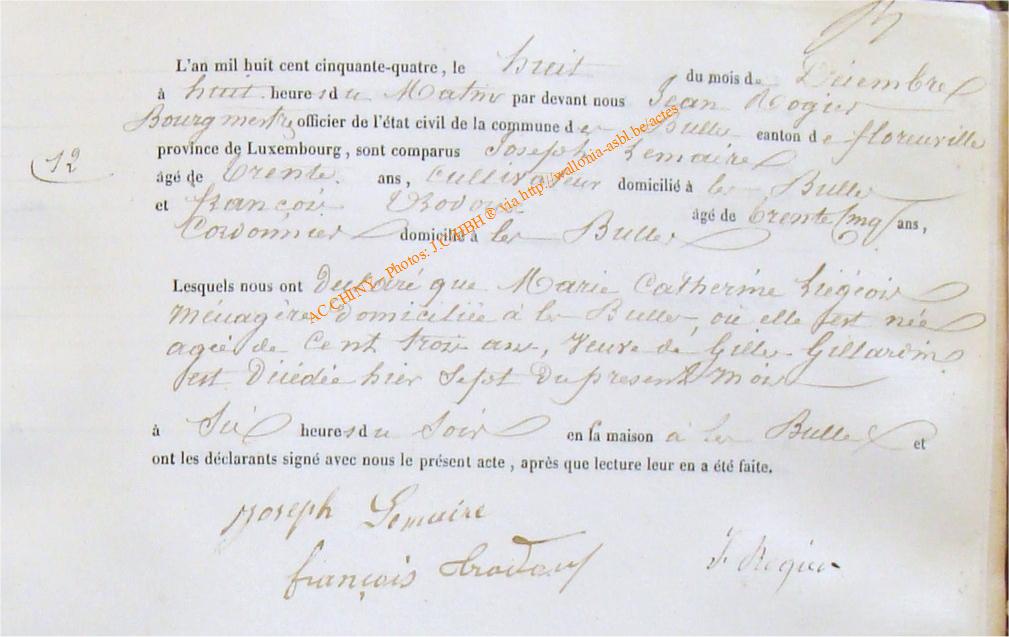 L'an mil huit cent cinquante-quatre, le huit du mois de Décembre
à huit heures du Matin par devant nous Jean Rogier
Bourgmestre officier de l'état civil de la commune de les Bulles canton de florenville
12
province de Luxembourg, sont comparus Joseph Lemaire
âgé de trente ans, cultivateur domicilié à les Bulles
et françois âgé de trente cinq ans,
Cordonnier domicilié à les Bulles
AC CHINY - Photos: J.C. HBH ® via http://wallonia-asbl.be/actes
Lesquels nous ont déclaré que Marie Catherine Liégeois
ménagère domiciliée à les Bulles, où elle est née
agée de Cent trois ans, Veuve de Gilles Gillardin
est Décédée hier Sept Du présent mois
à Six heures du Soir en sa maison à les Bulles et
ont les déclarants signé avec nous le présent acte, après que lecture leur en a été faite.
Joseph Lemaire
françois
J. Rogier